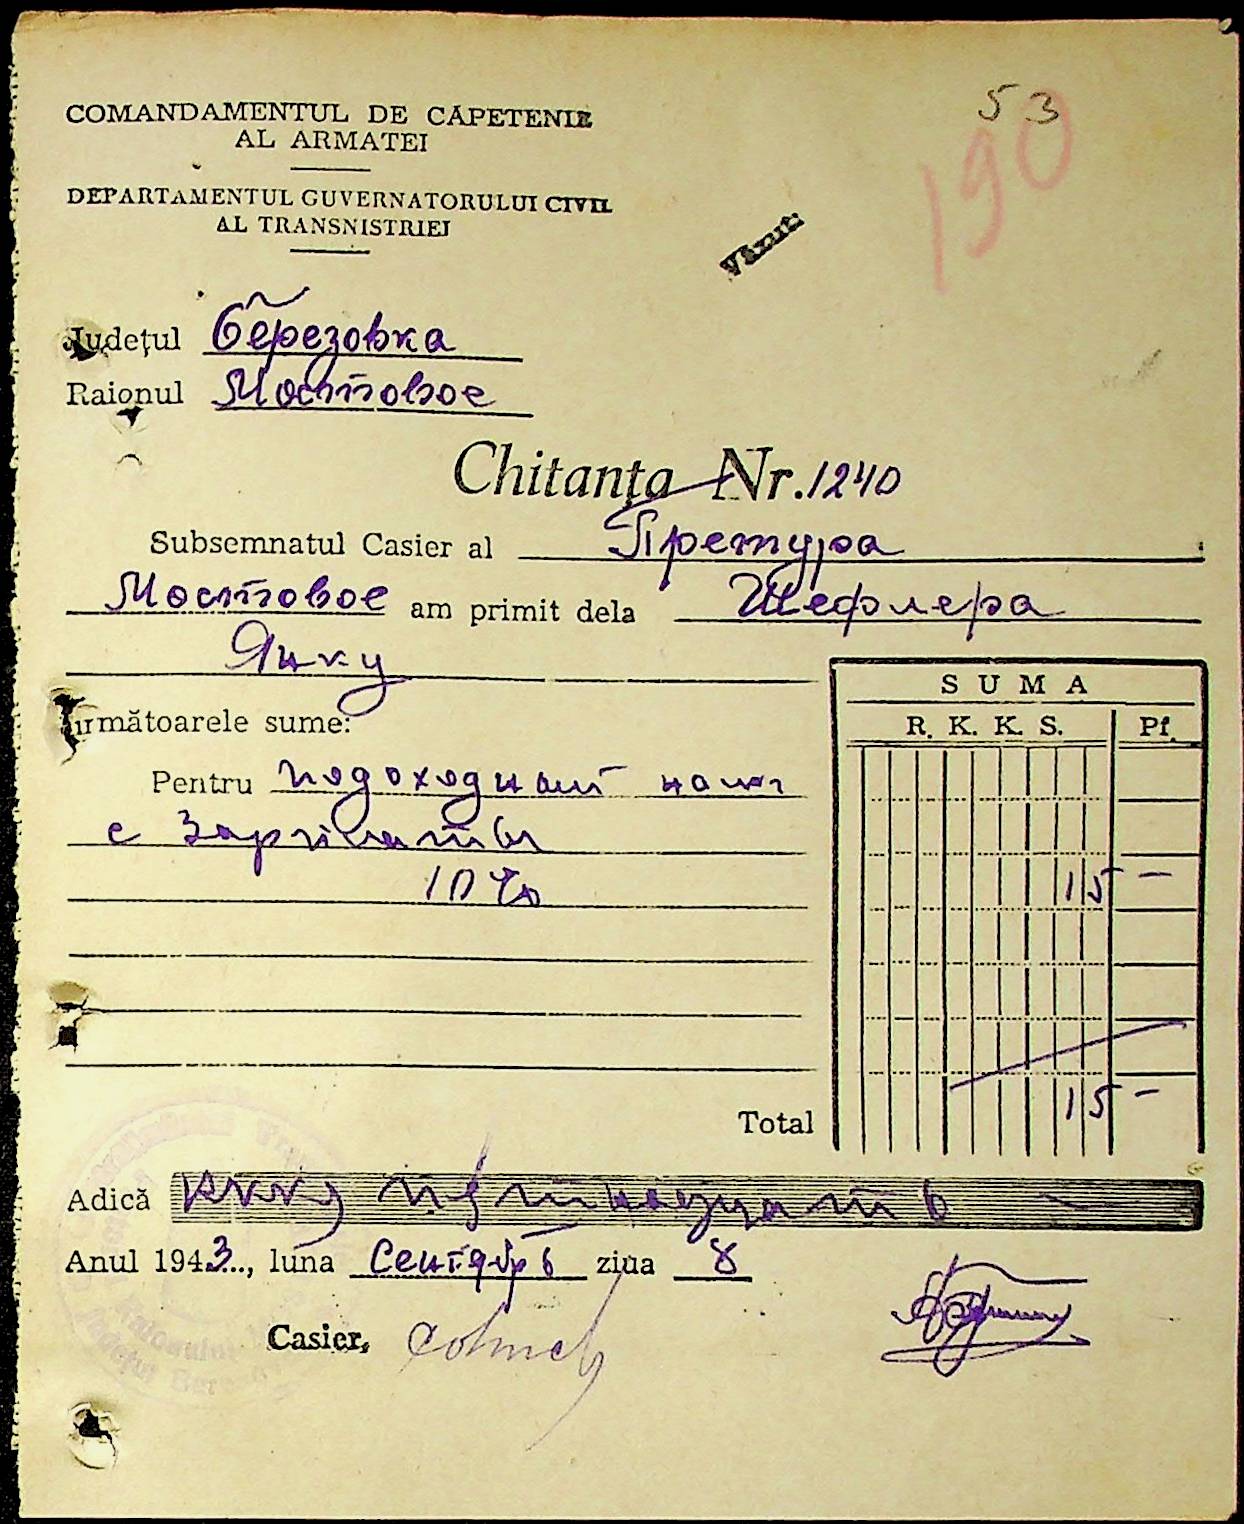 53
190
COMANDAMENTUL DE CĂPETENIE
AL ARMATEI
DEPARTAMENTUL GUVERNATORULUI CIVIL
AL TRANSNISTRIEI
Văzut:
Județul Березовка
Raionul Мостовое
Chitanța Nr. 1240
Subsemnatul Casier al Претура
Мостовое am primit dela Шефлера
Янку
următoarele sume:
SUMA
R. K. K. S. Pf.
Pentru подоходный налог
с зарплаты
10% 15 —
Total 15 —
Adică пятнадцать —
Anul 1943..., luna Сентябрь ziua 8
Casier,